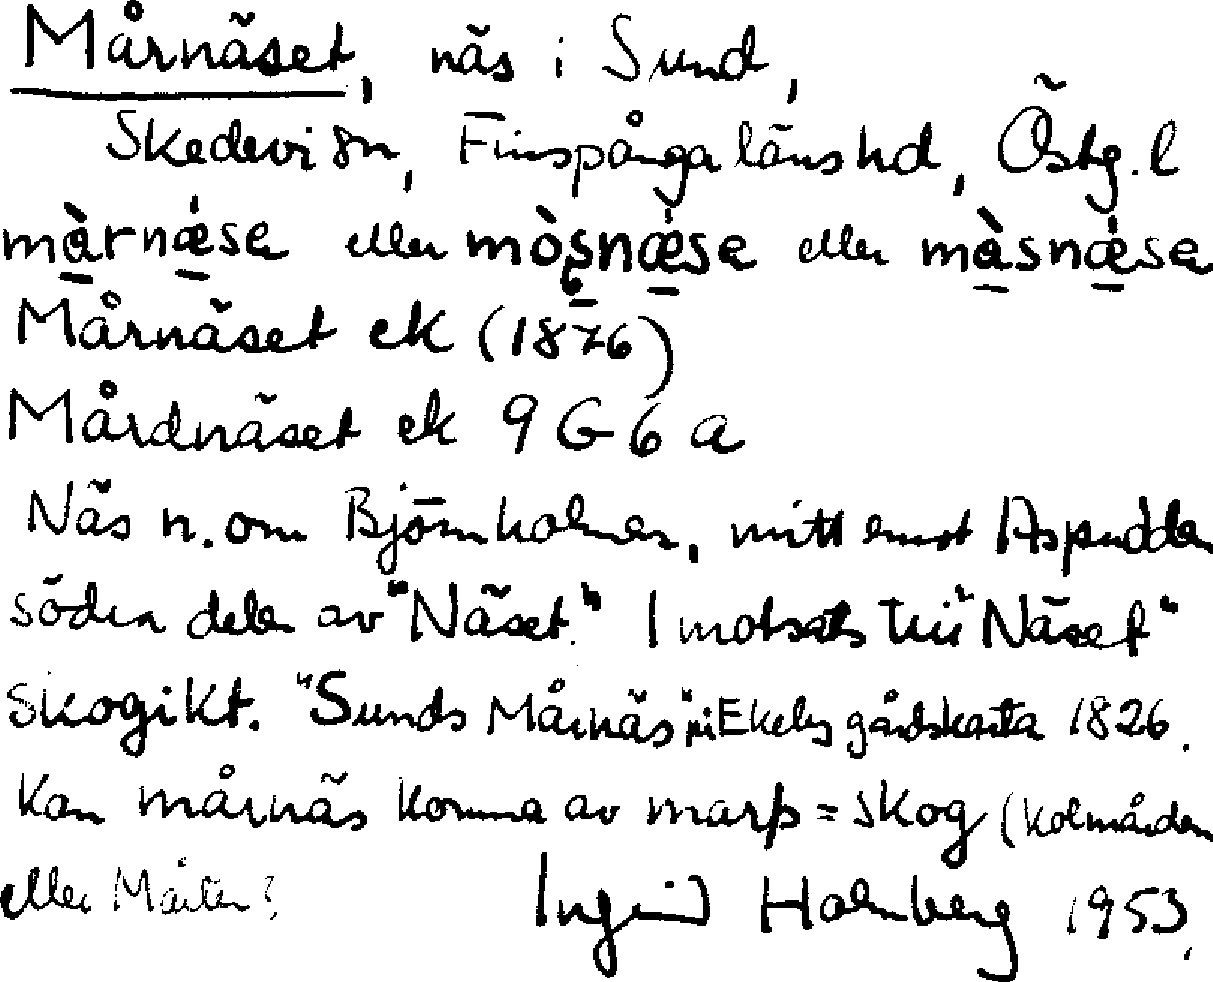 Mårnäset, näs i Sund,
Skedevi sn, Finspånga länshd, Östg. l
màrnǽsa eller mòsnǽsa eller màsnǽsa
Mårnäset ek (1876)
Mårdnäset ek 9 G 6 a
Näs n. om Björnholmen, mitt emot Aspudden
södra delen av "Näset." I motsats till "Näset"
skogikt. "Sunds Mårnäs" på Ekeby gårdskarta 1826.
Kan mårnäs komma av marþ = skog (Kolmården
eller Mårten?
Ingrid Holmberg 1953.